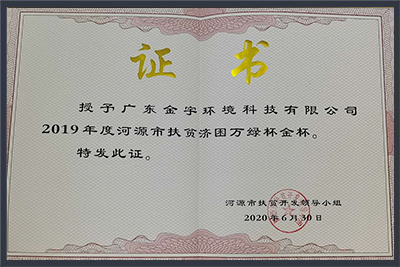 证书
授予广东金宇环境科技有限公司
2019年度河源市扶贫济困万绿杯金杯。
特发此证。
河源市扶贫开发领导小组
2020年6月30日